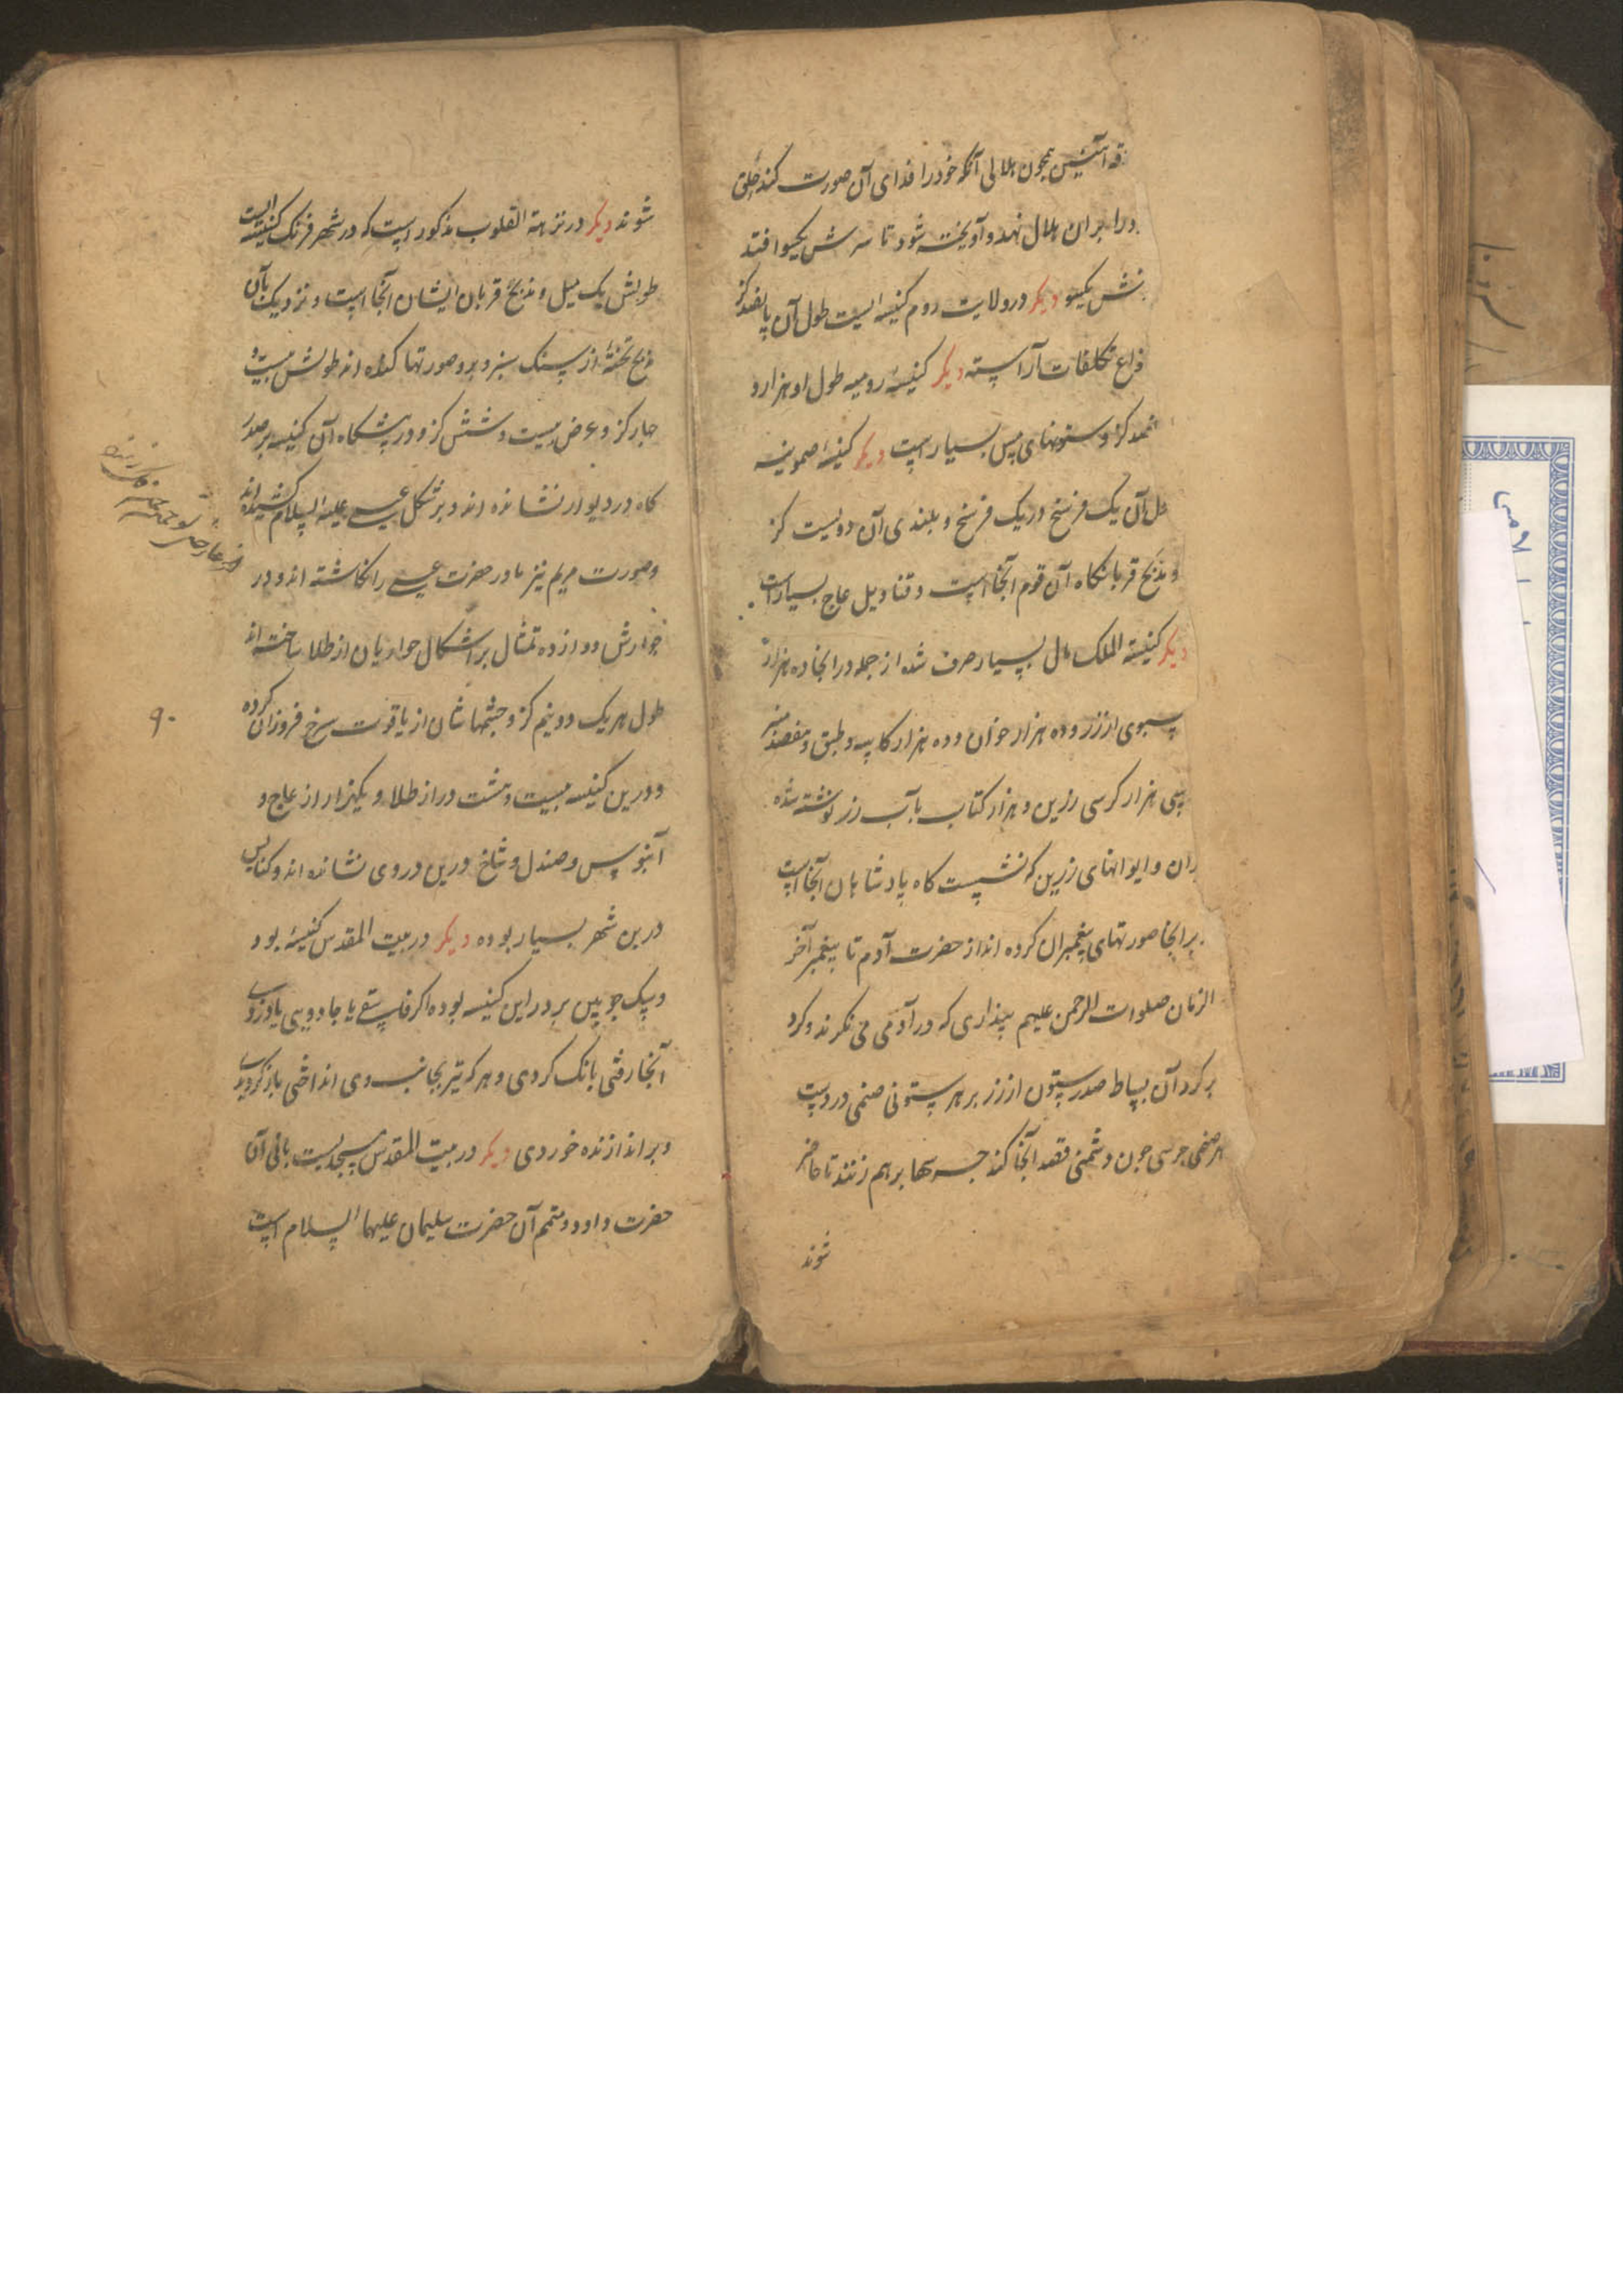 آتشین همچون هلالی آنکه خود را فدای آن صورت کند حلق
ورا بران هلال نهد و آویخته شود تا سرش یکسو افتد
تنش یکسو دیکر در ولایت روم کنیسه ایست طول آن پانصد کز
تکلفات آراسته دیکر کنیسهٔ رومیه طول او هزار و
کز و ستونهای مس بسیار است دیکر کنیسهٔ
آن یک فرسخ در یک فرسخ و بلندی آن دویست کز
و مذبح قربانکاه آن قوم آنجا است و قنادیل عاج بسیار است
دیکر کنیسة الملک مال بسیار صرف شده از جمله در آنجا ده هزار
سبوی از زر و ده هزار خوان و ده هزار کاسه و طبق و هفصد
سی هزار کرسی زرین و هزار کتاب بآب زر نوشته شده
و ایوانهای زرین که نشست کاه پادشاهان آنجا است
برانجا صورتهای پیغمبران کرده اند از حضرت آدم تا پیغمبر آخر
الزمان صلوات الرحمن علیهم پنداری که در آدمی می نکرند و کرد
بر کرد آن بساط صد ستون از زر بر هر ستونی صنمی در دست
هر صنمی جرسی چون دشمنی قصد آنجا کند جرسها برهم زنند تا حاضر
شوند
شوند دیکر در نزهة القلوب مذکور است که در شهر فرنک کنیسه ایست
طولش یک میل و مذبح قربان ایشان آنجا است و نزدیک بآن
مذبح تختهٔ از سنک سبز و برو صورتها کنده اند طولش بیست و
چار کز و عرض بیست و شش کز و در پیشکاه آن کنیسه بر صدر
کاه در دیوار نشانده اند و بر شکل عیسی علیه السلام کشیده اند
و صورت مریم نیز مادر حضرت عیسی را نکاشته اند و در
جوارش دوازده تمثال بر اشکال حواریان از طلا ساخته اند
طول هر یک دو نیم کز و چشمهاشان از یاقوت سرخ فروزان کرده
۹۰
و درین کنیسه بیست و هشت در از طلا و یکهزار از عاج و
آبنوس و صندل و شاخ درین در وی نشانده اند و کنایس
درین شهر بسیار بوده دیکر در بیت المقدس کنیسهٔ بود
و سک چوبین بر در این کنیسه بوده اکر فاسقی یا جادویی یا دزدی
آنجا رفتی بانک کردی و هر که تیر بجانب وی انداختی باز کردیدی
و بر اندازنده خوردی دیکر در بیت المقدس مسجدیست بانی آن
حضرت داود و متمم آن حضرت سلیمان علیهما السلام است